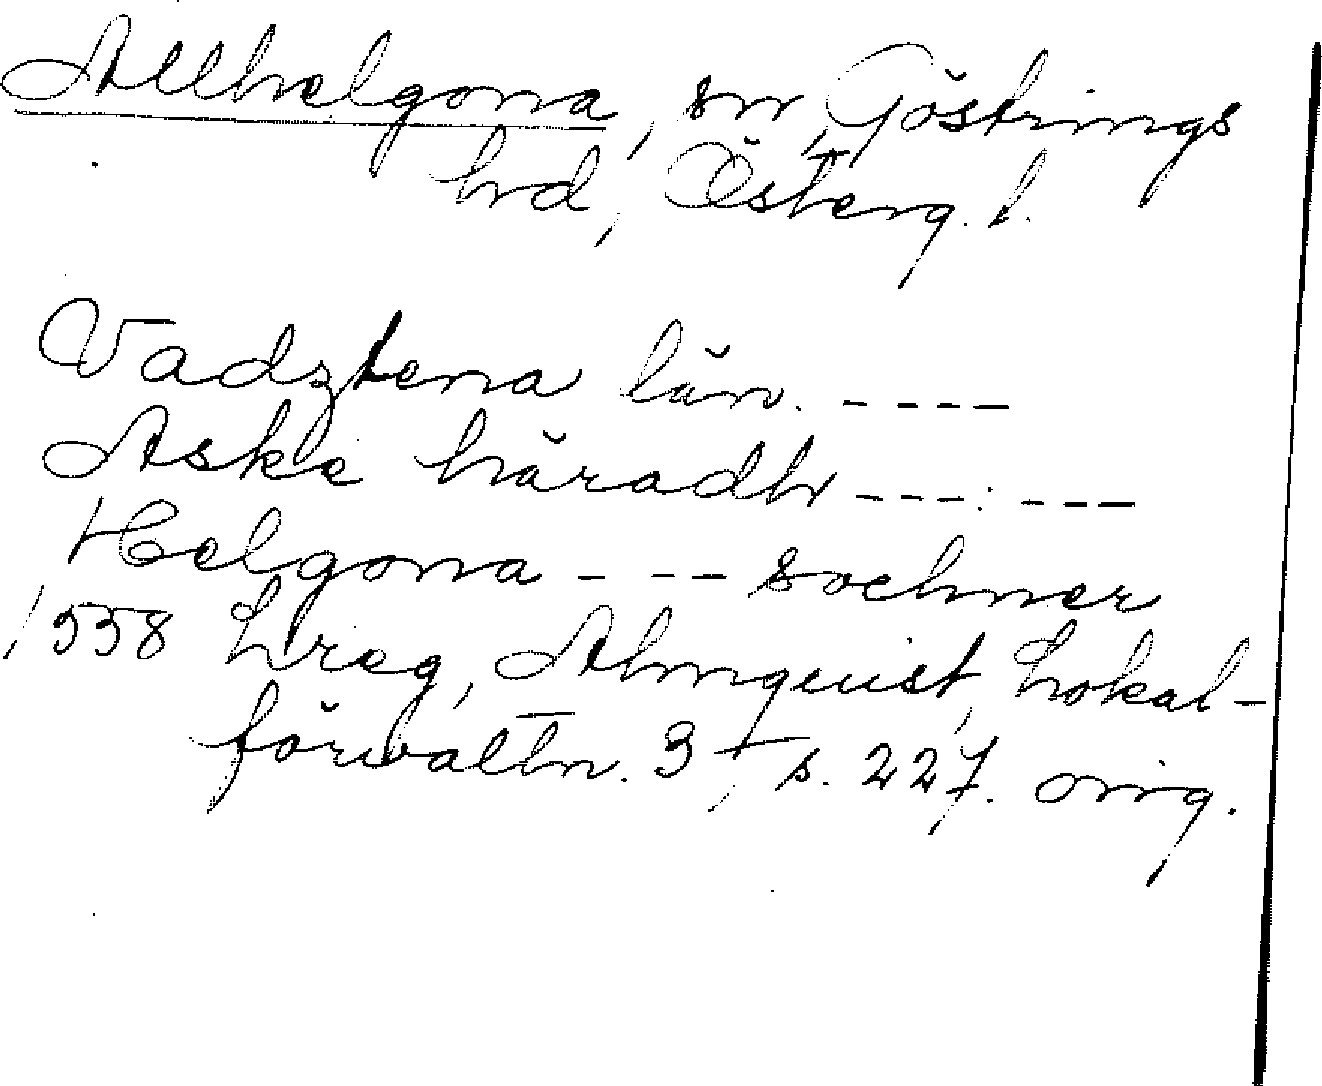 Allhelgona, sn, Göstrings
hd, Österg. l.
Vadztena län. ----
Aske häradh ---:---
Helgona - -- sochner
1558 Lreg, Almquist, Lokal-
förvaltn. 3, s. 227. orig.